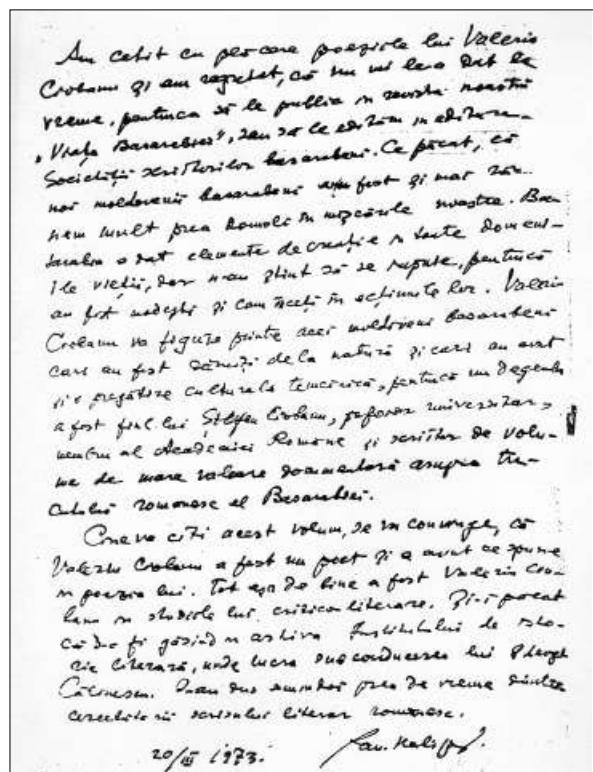 Am cetit cu plăcere poeziile lui Valeriu
Ciobanu și am regretat, că nu mi le-a dat la
vreme, pentruca să le public în revista noastră
„Viața Basarabiei", sau să le edităm în editura
Societății scriitorilor basarabeni. Ce păcat, că
noi moldovenii basarabeni am fost și mai rămâ-
nem mult prea domoli în mișcările noastre. Basa-
rabia a dat elemente de creație în toate domeni-
ile vieții, dar n-au știut să se impuse, pentrucă
au fost modești și cam înceți în acțiunile lor. Valeriu
Ciobanu va figura printre acei moldoveni basarabeni
cari au fost dăruiți de la natură și cari au avut
și o pregătire culturală temeinică, pentrucă nu degeaba
a fost fiul lui Ștefan Ciobanu, profesor universitar,
membru al Academiei Romane și scriitor de volu-
me de mare valoare documentară asupra tre-
cutului romanesc al Basarabiei.
Cine va citi acest volum, se va convinge, că
Valeriu Ciobanu a fost un poet și a avut ce spune
în poezia lui. Tot așa de bine a fost Valeriu Cio-
banu în studiile lui critico-literare. Și-i păcat
că dor fi găsind în arhiva Institutului de isto-
rie literară, unde lucra sub conducerea lui George
Călinescu. I-au dus amândoi prea de vreme dintre
scrisului literar romanesc.
20/III 1973.